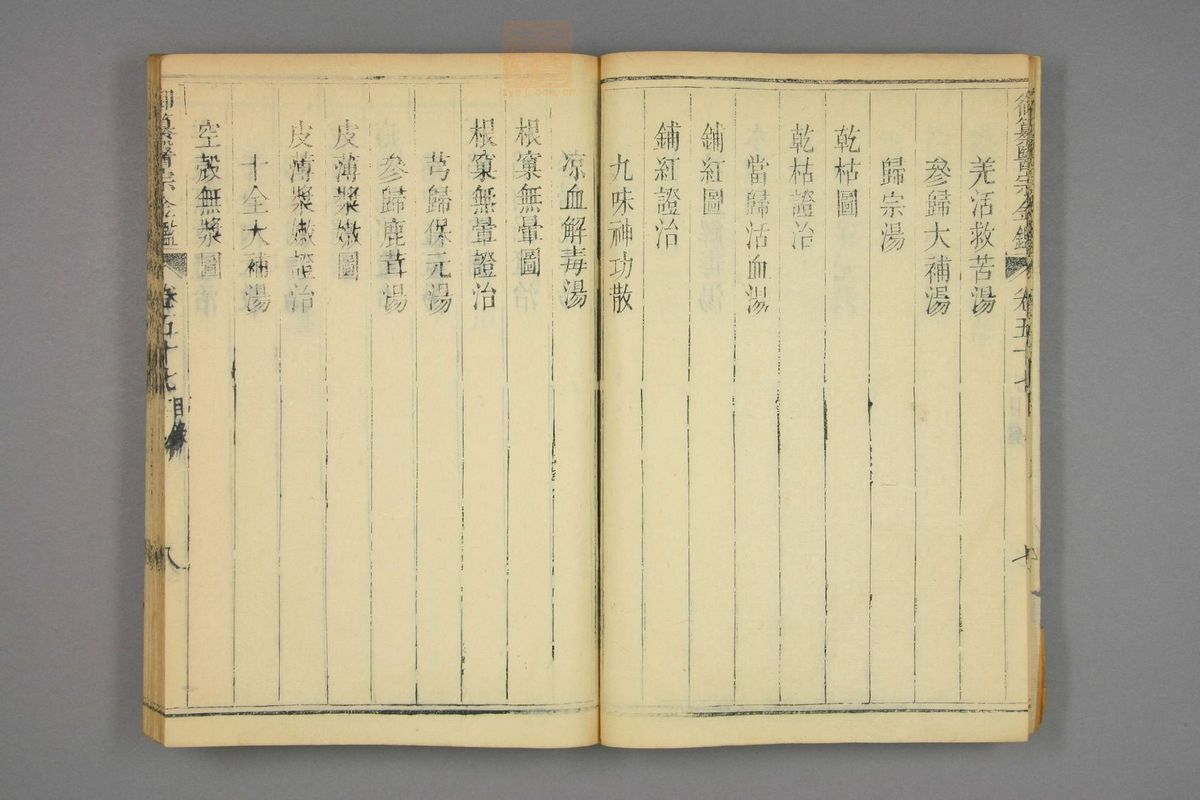 御纂醫宗金鑑 卷五十七 目錄 七
羌活救苦湯
參歸大補湯
歸宗湯
乾枯圖
乾枯證治
當歸活血湯
鋪紅圖
鋪紅證治
九味神功散
凉血解毒湯
根窠無暈圖
根窠無暈證治
芎歸保元湯
參歸鹿茸湯
皮薄漿嫩圖
皮薄漿嫩證治
十全大補湯
空殼無漿圖
御纂醫宗金鑑 卷五十七 目錄 八